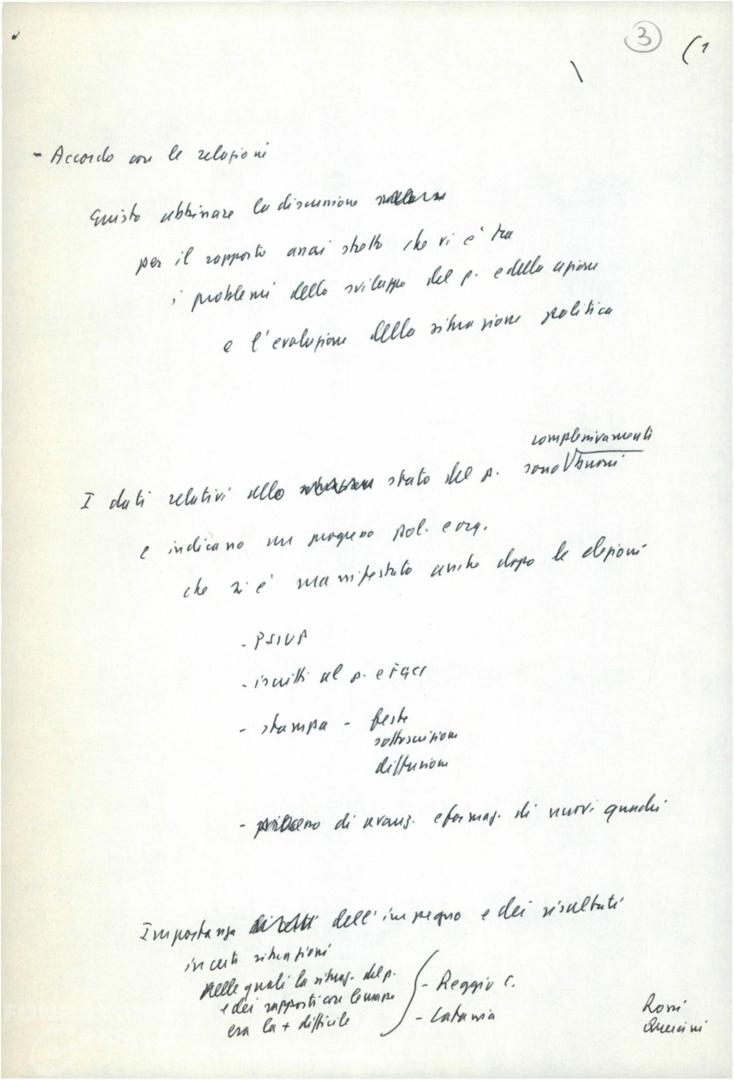 3 (1
- Accordo con le relazioni
Giusto abbinare la discussione
per il rapporto assai stretto che vi è tra
i problemi dello sviluppo del p. e della azione
e l'evoluzione della situazione politica
complessivamente
I dati relativi allo stato del p. sono buoni
e indicano un progresso pol. e org.
che si è manifestato anche dopo le elezioni
- PSIUP
- iscritti al p. e FGCI
- stampa - feste
sottoscrizione
diffusione
- di avanz. e formaz. di nuovi quadri
Importanza dell'impegno e dei risultati
in certi situazioni
nelle quali la situaz. del p.
e dei rapporti con le masse
era la + difficile
- Reggio C.
- Catania
Rossi
Quercini